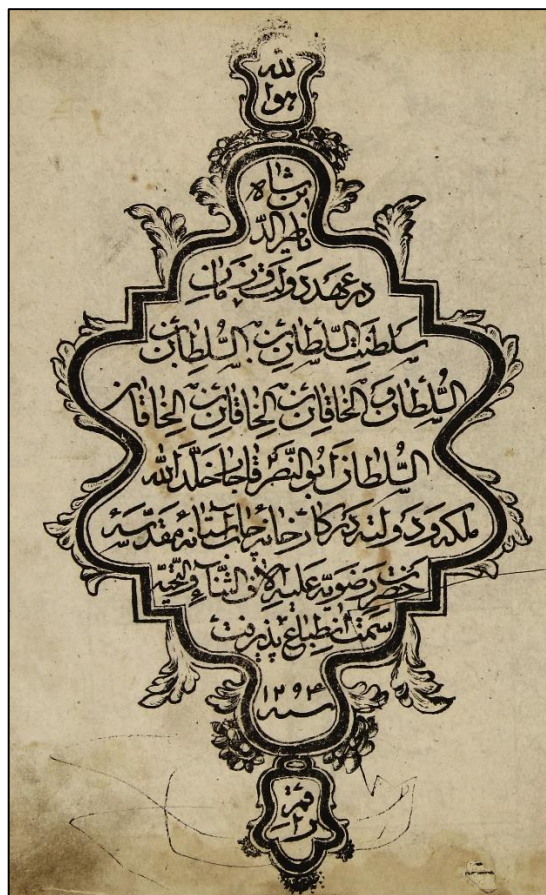 لله
هوا
شاه
ین
ناصر الدّ
در عهد دولت و زمان
سلطنت السّلطان بن السّلطان بن
السّلطان و الخاقان بن الخاقان بن الخاقان
السّلطان ابوالنّصر قاجار خلّد الله
ملکه و دولته در کارخانه چاپ آستانه مقدّسه
حضرت رضویّه علیه الاف الثّناء و التّحیّة
سمت انطباع پذیرفت
۱۲۹۴
سنه